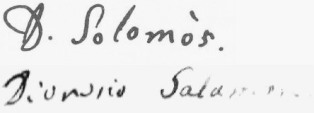 D. Solomòs.
Dionisio Salamon